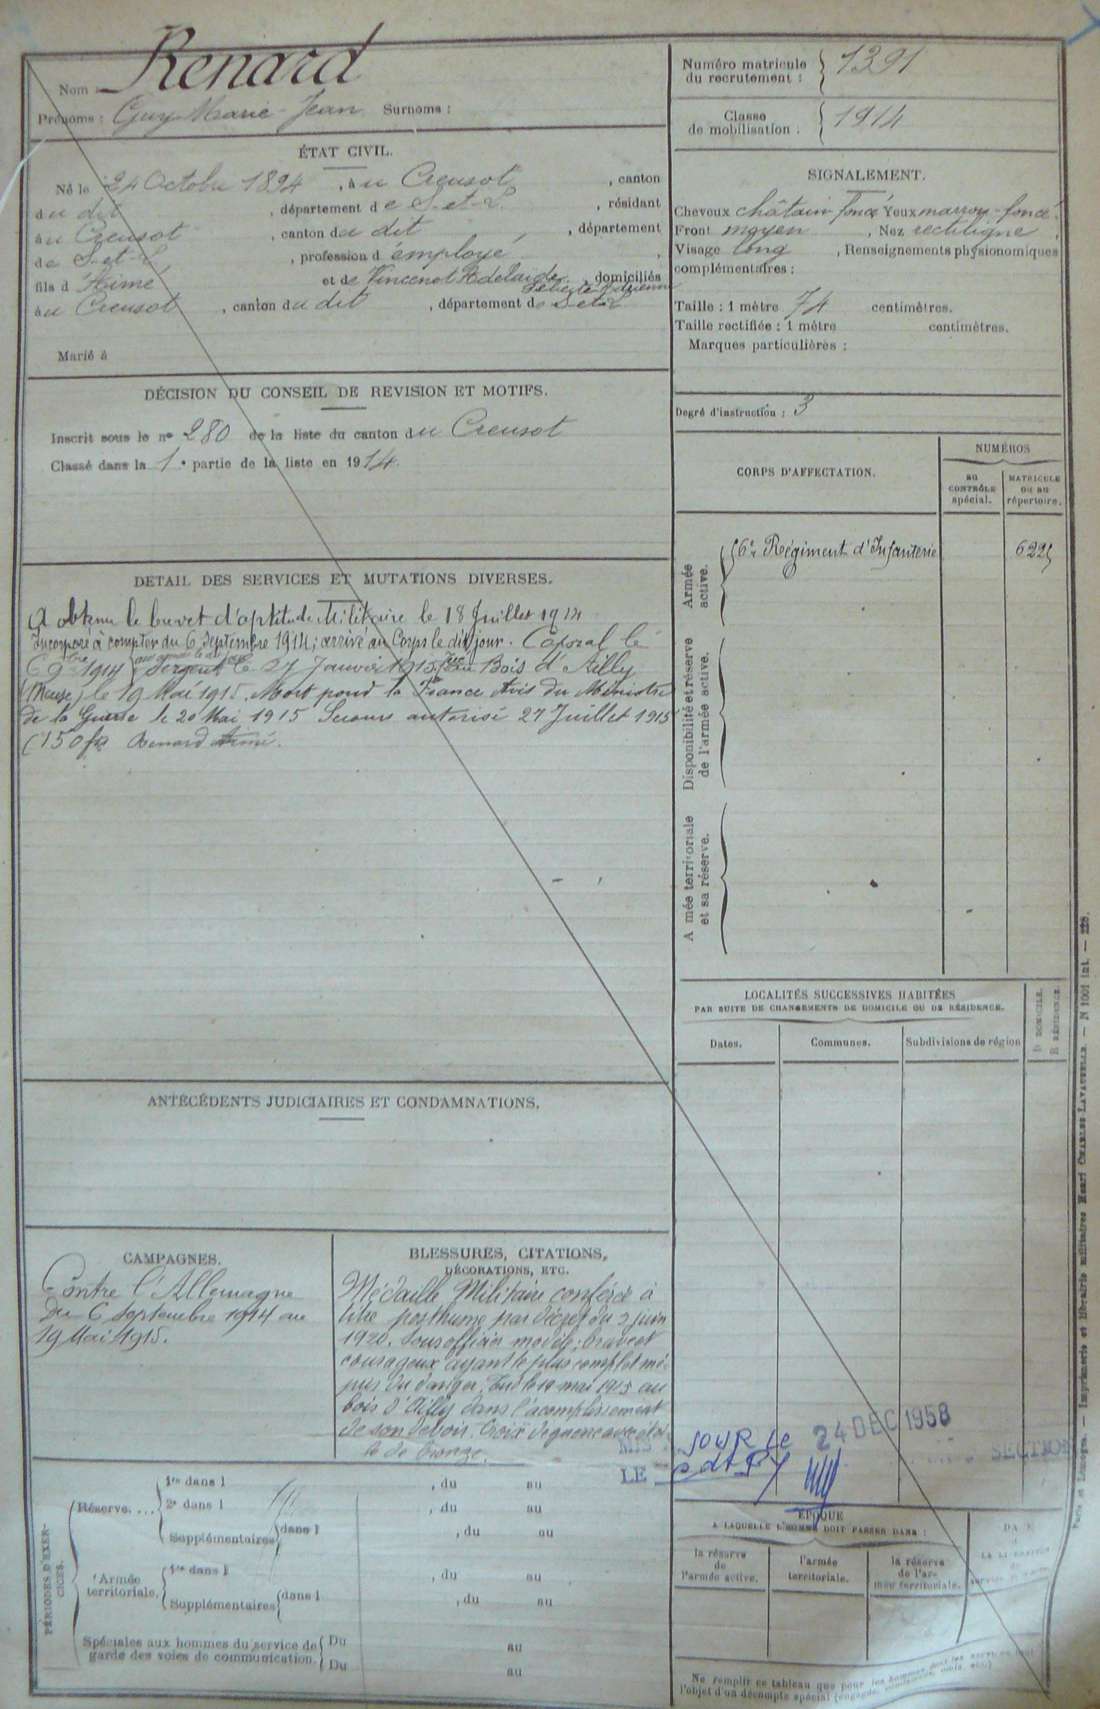 Nom : Renard
Prénoms : Guy Marie Jean Surnoms :
ÉTAT CIVIL.
Né le 24 Octobre 1894, à u Creusot, canton
du dit, département de S.-et-L., résidant
à u Creusot, canton du dit, département
de S.-et-L., profession d'employé,
fils d'Aimé et de Vincenot Adelaide Félicité Adrienne, domiciliés
à u Creusot, canton du dit, département de S.et.L
Marié à
DÉCISION DU CONSEIL DE REVISION ET MOTIFS.
Inscrit sous le n° 280 de la liste du canton du Creusot
Classé dans la 1e partie de la liste en 1914.
DÉTAIL DES SERVICES ET MUTATIONS DIVERSES.
A obtenu le brevet d'aptitude Militaire le 18 Juillet 1914
Incorporé à compter du 6 Septembre 1914; arrivé au Corps le dit jour. Caporal le
6 9bre 1914 Sergent le 27 Janvier 1915 Tué au Bois d'Ailly
(Meuse) le 19 Mai 1915. Mort pour la France Avis du Ministre
de la Guerre le 20 Mai 1915 Secours autorisé 27 Juillet 1915
(150 frs Renard Aimé.
ANTÉCÉDENTS JUDICIAIRES ET CONDAMNATIONS.
CAMPAGNES.
Contre l'Allemagne
du 6 Septembre 1914 au
19 Mai 1915.
BLESSURES, CITATIONS,
DÉCORATIONS, ETC.
Médaille Militaire conférée à
titre posthume par décret du 2 juin
1920. Sous officier modèle: brave et
courageux ayant le plus complet mé-
pris du danger. Tué le 19 mai 1915 au
bois d'Ailly dans l'acomplissement
de son devoir. Croix de guerre avec étoi-
le de bronze.
PÉRIODES D'EXER-
CICES.
Réserve. ...
1re dans l , du au
2e dans l , du au
Supplémentaires dans l , du au
Armée
territoriale.
1re dans l , du au
Supplémentaires dans l , du au
Spéciales aux hommes du service de
garde des voies de communication.
Du au
Du au
Numéro matricule
du recrutement : 1391
Classe
de mobilisation : 1914
SIGNALEMENT.
Cheveux châtain foncé Yeux marron-foncé.
Front moyen, Nez rectiligne,
Visage long, Renseignements physionomiques
complémentaires :
Taille : 1 mètre 74 centimètres.
Taille rectifiée : 1 mètre centimètres.
Marques particulières :
Degré d'instruction : 3
CORPS D'AFFECTATION.
NUMÉROS
au
CONTRÔLE
spécial.
MATRICULE
ou au
répertoire.
Armée
active.
56e Régiment d'Infanterie 6225
Disponibilité et réserve
de l'armée active.
A mée territoriale
et sa réserve.
LOCALITÉS SUCCESSIVES HABITÉES
PAR SUITE DE CHANGEMENTS DE DOMICILE OU DE RÉSIDENCE.
D DOMICILE.
R RÉSIDENCE.
Dates.
Communes.
Subdivisions de région
MIS JOUR LE 24 DEC 1958
LE SECTION
ÉPOQUE
A LAQUELLE L'HOMME DOIT PASSER DANS :
la réserve
de
l'armée active.
l'armée
territoriale.
la réserve
de l'ar-
mée territoriale.
DATE
Ne remplir ce tableau que pour les hommes dont les services font
l'objet d'un décompte spécial (engagés, omis, etc.)
Paris et Limoges. — Imprimerie et librairie militaires Henri CHARLES-LAVAUZELLE. — N 1001 int. — 228.